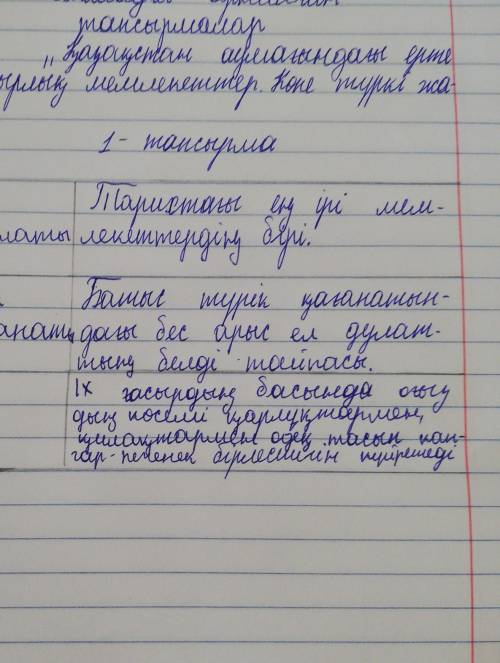 тапсырмалар
"Қазақстан аумағындағы ерте
мемлекеттер. Көне түркі жа-
1- тапсырма
Тарихтағы ең ірі мем-
лекеттердің бірі.
Батыс түрік қағанатын-
дағы бес арыс ел дулат-
тың белді тайпасы.
IX ғасырдың басында оғыз
дың көсемі қарлұқтармен,
қимақтармен одақ тасып кан-
гар-печенек бірлестігін күйретеді